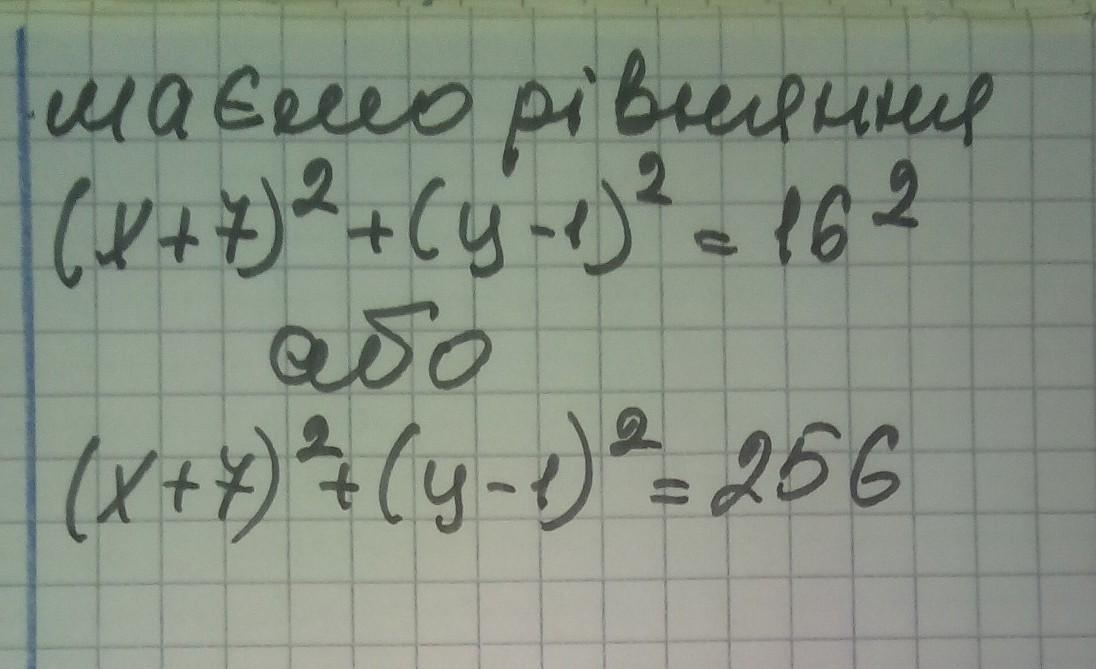 маємо рівняння
(x+7)² + (y-1)² = 16²
або
(x+7)² + (y-1)² = 256